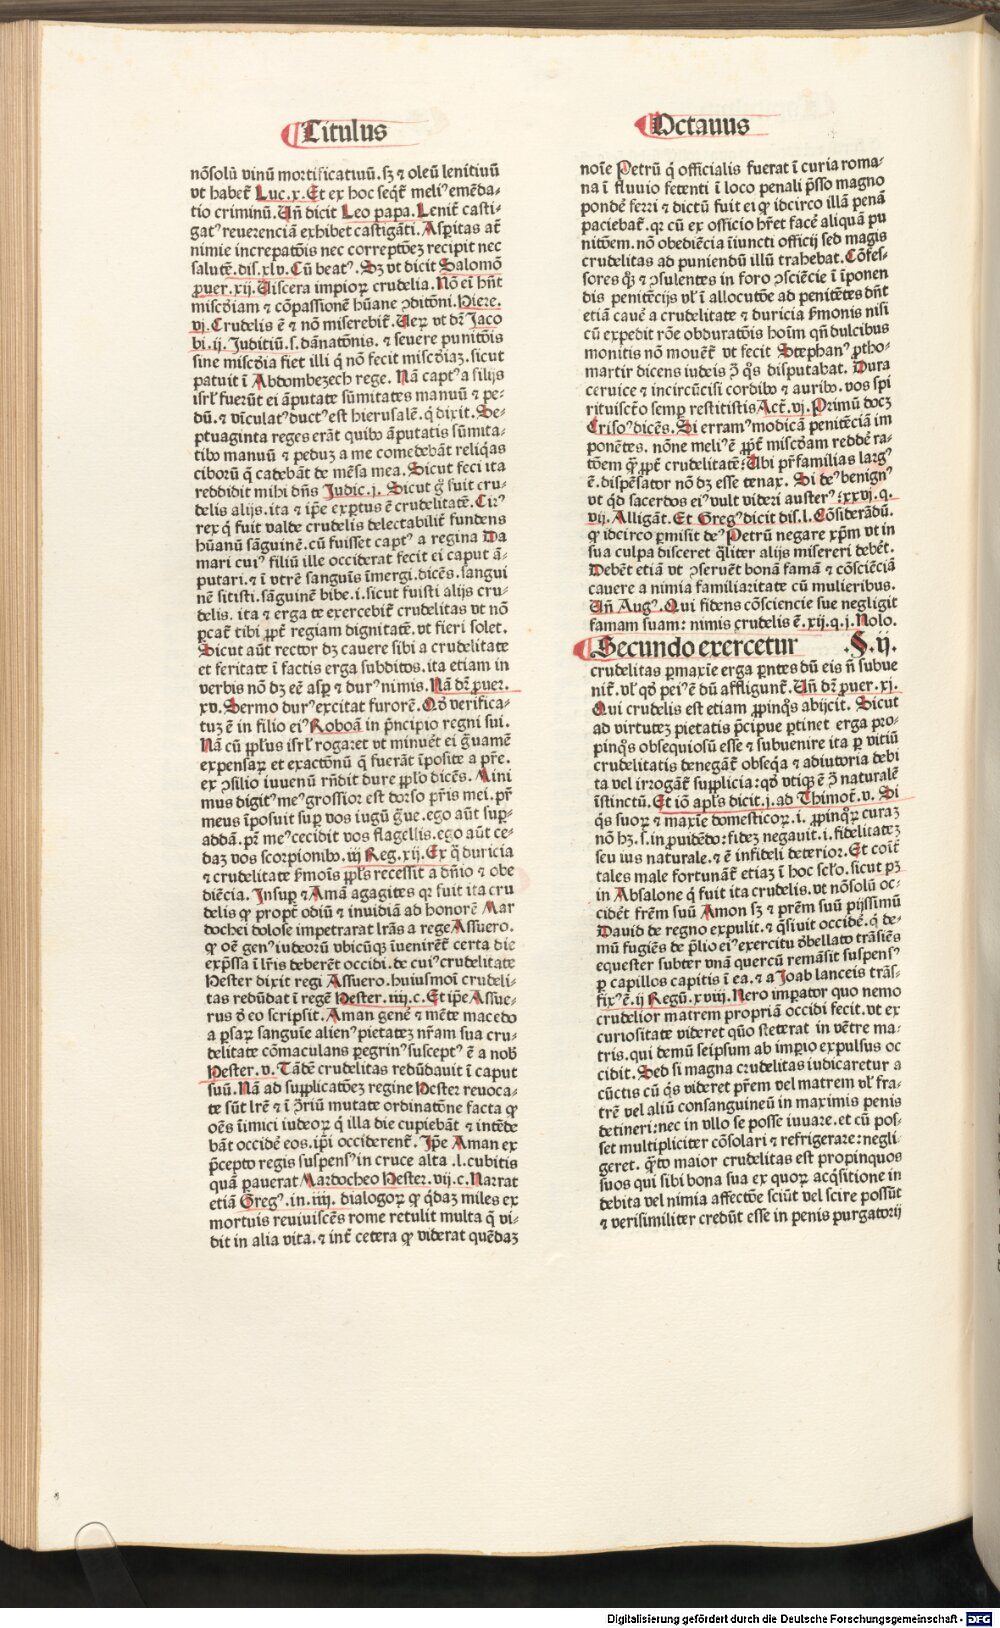 Titulus
Octauus
nōsolū vinū mortificatiuū.sꝫ ⁊ oleū lenitiuū
vt habet᷑ Luc.x. Et ex hoc seqt᷑ meliꝰ emēda-
tio criminū. Uñ dicit Leo papa. Lenit᷑ casti-
gatꝰ reuerenciā exhibet castigāti. Asp̄itas at᷑
nimie increpatōis nec correptōeꝫ recipit nec
salutē.dis.xlv. Cū beatꝰ. Sꝫ vt dicit Salomō
ꝓuer.xij. Uiscera impioꝝ crudelia. Nō ei hn̄t
misc̄diam ⁊ cōpassionē hūane ↄditōni. Hiere.
vj. Crudelis ē ⁊ nō miserebit᷑. Ueꝝ vt dr̄ Jaco
bi.ij. Juditiū.s.dānatōnis. ⁊ seuere punitōis
sine misc̄dia fiet illi q̄ nō fecit misc̄diaꝫ.sicut
patuit ī Abdombezech rege. Nā captꝰ a filijs
isrl̓ fuerūt ei āputate sūmitates manuū ⁊ pe-
dū.⁊ viculatꝰ ductꝰ est hierusalē.q̄ dixit. Se-
ptuaginta reges erāt quibꝰ āputatis sūmita-
tibꝰ manuū ⁊ peduꝫ a me comedebāt reliq̄as
ciborū q̄ cadebāt de mēsa mea. Sicut feci ita
reddidit mihi dn̄s Judic.j. Sicut ḡ fuit cru-
delis alijs.ita ⁊ ip̄e exꝑtus ē crudelitatē. Cirꝰ
rex q̄ fuit valde crudelis delectabilit᷑ fundens
hūanū sāguinē.cū fuisset captꝰ a regina Da
mari cuiꝰ filiū ille occiderat fecit ei caput ā-
putari.⁊ ī vtrē sanguīs īmergi.dicēs.sangui
nē sitisti.sāguinē bibe.i.sicut fuisti alijs cru-
delis. ita ⁊ erga te exercebit᷑ crudelitas vt nō
ꝑcat᷑ tibi ꝓpt᷑ regiam dignitatē.vt fieri solet.
Sicut aūt rector dꝫ cauere sibi a crudelitate
et feritate ī factis erga subditos.ita etiam in
verbis nō dꝫ eē asꝑ ⁊ durꝰ nimis. Nā dr̄ ꝓuer.
xv. Sermo durꝰ excitat furorē. Qd̓ verifica-
tuꝫ ē in filio eiꝰ Roboā in p̄ncipio regni sui.
Nā cū ꝓpl̓us isrl̓ rogaꝛet vt minuēt ei ḡuamē
expensaꝝ et exactōnū q̄ fuerāt īposite a pr̄e.
ex ↄsilio iuuenū rn̄dit dure ꝓpl̓o dicēs. Mini
mus digitꝰ meꝰ grossior est dorso pr̄is mei.pr̄
meus īposuit suꝑ vos iugū ḡue.ego aūt suꝑ-
addā.pr̄ meꝰ cecidit vos flagellis.ego aūt ce-
daꝫ vos scorpionibꝰ.iij Reg.xij. Ex q̄ duricia
⁊ crudelitate ẜmōis ꝓpl̓s recessit a dn̄io ⁊ obe
diēcia. Insuꝑ ⁊ Amā agagites qꝛ fuit ita cru
delis ꝙ propt᷑ odiū ⁊ inuidiā ad honorē Mar
dochei dolose impetrarat lr̄as a rege Assuero.
ꝙ oē genꝰ iudeorū vbicūqꝫ īuenirēt᷑ certa die
exp̄ssa ī lr̄is deberēt occidi.de cuiꝰ crudelitate
Hester dixit regi Assuero.huiusmoi crudeli-
tas redūdat ī regē Hester.iiij.c. Et ip̄e Assue-
rus d̓ eo scripsit. Aman genē ⁊ mēte macedo
a ꝑsaꝝ sanguīe alienꝰ pietateꝫ nr̄am sua cru-
delitate cōmaculans ꝑegrinꝰ susceptꝰ ē a nob̓
Hester.v. Tādē crudelitas redūdauit ī caput
suū. Nā ad suꝑplicatōeꝫ regine Hester reuoca-
te sūt lr̄e ⁊ ī ↄ̄riū mutate ordinatōne facta ꝙ
oēs īimici iudeoꝝ q̄ illa die cupiebāt ⁊ intēde
bāt occidē eos.ip̄i occiderent᷑. Ip̄e Aman ex
p̄cepto regis suspensꝰ in cruce alta.l.cubitis
quā ꝑauerat Mardocheo Hester.vij.c. Narrat
etiā Gregꝰ.in.iiij. dialogoꝝ ꝙ q̄daꝫ miles ex
mortuis reuiuiscēs rome retulit multa q̄ vi-
dit in alia vita.⁊ int᷑ cetera ꝙ viderat quēdaꝫ
noīe Petrū q̄ officialis fuerat ī curia roma-
na ī fluuio fetenti ī loco penali p̄sso magno
pondē ferri ⁊ dictū fuit ei ꝙ idcirco illā penā
paciebat᷑.qꝛ cū ex officio hr̄et facē aliquā pu
nitōem.nō obediēcia īiuncti officij sed magis
crudelitas ad puniendū illū trahebat. Cōfes-
sores q̄ꝫ ⁊ ↄsulentes in foro ↄsciēcie ī īponen
dis penitēcijs vl̓ ī allocutōe ad penitētes dn̄t
etiā cauē a crudelitate ⁊ duricia ẜmonis nisi
cū expedit rōe obduratōis hoīm qn̄ dulcibus
monitis nō mouēt᷑ vt fecit Stephanꝰ ꝓtho-
martir dicens iudeis ↄ̄ q̄s disputabat. Dura
ceruice ⁊ incircūcisi cordibꝰ ⁊ auribꝰ.vos spi
rituiscto semꝑ restitistis Act.vj. Primū docꝫ
Crisoꝰ dicēs. Si erramꝰ modicā penitēciā im
ponētes. nōne meliꝰ ē ꝓpt᷑ misc̄dam reddē ra-
tōem q̄ꝫ ꝓpt᷑ crudelitatē: Ubi pr̄familias largꝰ
ē.dispēsator nō dꝫ esse tenax. Si deꝰ benignꝰ
vt qd̓ sacerdos eiꝰ vult videri austerꝰ:xxvj.q.
vij. Alligāt. Et Gregꝰ dicit dis.l. Cōsiderādū.
ꝙ idcirco ꝑmisit deꝰ Petrū negare xp̄m vt in
sua culpa disceret qlīter alijs misereri debēt.
Debēt etiā vt ↄseruēt bonā famā ⁊ cōsciēciā
cauere a nimia familiaritate cū mulieribus.
Uñ Augꝰ. Qui fidens cōsciencie sue negligit
famam suam: nimis crudelis ē.xij.q.j. Nolo.
Secundo exercetur .§.ij.
crudelitas ꝑmaxīe erga ꝑntes dū eis n̄ subue
nit᷑.vl̓ qd̓ peiꝰ ē dū affligunt᷑. Uñ dr̄ ꝓuer.xj.
Qui crudelis est etiam ꝓpinq̄s abijcit. Sicut
ad virtuteꝫ pietatis p̄cipue ꝑtinet erga pro-
pinq̄s obsequiosū esse ⁊ subuenire ita ꝑ vitiū
crudelitatis denegāt᷑ obseq̄a ⁊ adiutoria debi
ta vel irrogāt᷑ suꝑplicia:qd̓ vtiqꝫ ē ↄ̄ naturalē
īstinctū. Et iō apl̓s dicit.j.ad Thimot̄.v. Si
q̄s suoꝝ ⁊ maxīe domesticoꝝ.i. ꝓpinq̄ꝝ curaꝫ
nō hꝫ.s.in ꝓuidēdo:fideꝫ negauit.i.fidelitateꝫ
seu ius naturale.⁊ ē infideli deterior. Et coīt᷑
tales male fortunāt᷑ etiaꝫ ī hoc scl̓o.sicut pꝫ
in Absalone q̄ fuit ita crudelis.vt nōsolū oc-
cidēt frēm suū Amon sꝫ ⁊ prēm suū pijssimū
Dauid de regno expulit.⁊ q̄siuit occidē.q̄ de-
mū fugiēs de p̄lio eiꝰ exercitu d̓bellato trāsiēs
equester subter vnā quercū remāsit suspensꝰ
ꝑ capillos capitis ī ea.⁊ a Joab lanceis trās-
fixꝰ ē.ij Regū.xviij. Nero imꝑator quo nemo
crudelior matrem propriā occidi fecit.vt ex
curiositate videret qūo steterat in vētre ma-
tris.qui demū seipsum ab imꝑio expulsus oc
cidit. Sed si magna crudelitas iudicaretur a
cūctis cū q̄s videret prēm vel matrem vl̓ fra-
trē vel aliū consanguineū in maximis penis
detineri:nec in vllo se posse iuuare.et cū pos-
set multipliciter cōsolari ⁊ refrigerare:negli
geret. q̄̄to maior crudelitas est propinquos
suos qui sibi bona sua ex quoꝝ acq̄sitione in
debita vel nimia affectōe sciūt vel scire possūt
⁊ verisimiliter credūt esse in penis purgatorij
Digitalisierung gefördert durch die Deutsche Forschungsgemeinschaft - DFG